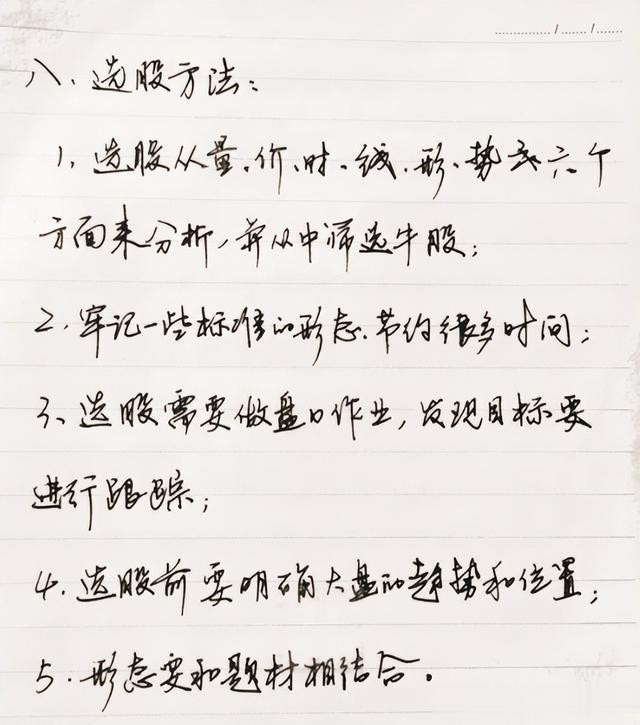 八、选股方法：
1、选股从量、价、时、线、形、势等六个
方面来分析，并从中筛选牛股；
2、牢记一些标准的形态、节约很多时间；
3、选股需要做盘口作业，发现目标要
进行跟踪；
4、选股前要明确大盘的趋势和位置；
5、形态要和题材相结合。